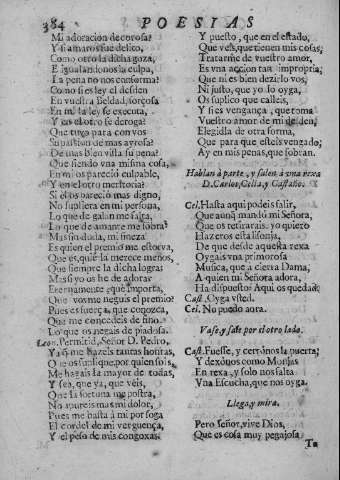 384 POESIAS
Mi adoracion decorosa?
Y si amaros fue delito,
Como otro la dicha goza,
E igualandonos la culpa,
La pena no nos conforma?
Como si es ley el desden
En vuestra Beldad, forçosa
En mi la ley se executa,
Y en el otro se deroga?
Que tuvo para con vos
Su passion de mas ayrosa?
De mas bien vista su pena?
Que siendo vna misma cosa,
En mi os pareció culpable,
Y en el otro meritoria?
Si el os pareció mas digno,
No supliera en mi persona,
Lo que de galan me falta,
Lo que de amante me sobra?
Mas sin duda, mi fineza
Es quien el premio me estorva,
Que es, que la merece menos,
Que siempre la dicha logra:
Mas si yo os he de adorar
Eternamente, que importa,
Que vos me negueis el premio?
Pues es fuerça, que conozca,
Que me concedeis de fino
Lo que os negais de piadosa.
Leon. Permitid, Señor D. Pedro,
Ya que me hazeis tantas honras,
Que os suplique, por quien sois,
Me hagais la mayor de todas,
Y sea, que ya, que veis,
Que la fortuna me postra,
No apureis mas mi dolor,
Pues me basta á mi por soga
El cordel de mi verguença,
Y el peso de mis congoxas.
Y puesto, que en el estado,
Que veis, que tienen mis cosas,
Tratarme de vuestro amor,
Es vna accion tan impropria;
Que ni es bien dezirlo vos,
Ni justo, que yo lo oyga,
Os suplico que calleis,
Y si es vengança, que toma
Vuestro amor de mi desden,
Elegidla de otra forma,
Que para que esteis vengado;
Ay en mis penas, que sobran.
Hablan á parte, y salen á vna rexa
D. Carlos, Celia, y Castaño.
Cel. Hasta aqui podeis salir,
Que aunque mandó mi Señora,
Que os retirarais, yo quiero
Hazeros esta lisonja,
De que desde aquesta rexa
Oygais vna primorosa
Musica, que a cierta Dama,
A quien mi Señora adora,
Ha dispuesto: Aqui os quedad.
Cast. Oyga vsted.
Cel. No puedo aora.
Vase, y sale por el otro lado.
Cast. Fuesse, y cerrónos la puerta;
Y dexónos como Monjas
En rexa, y solo nos falta
Vna Escucha, que nos oyga.
Llega, y mira.
Pero Señor, vive Dios,
Que es cosa muy pegajosa
Tu